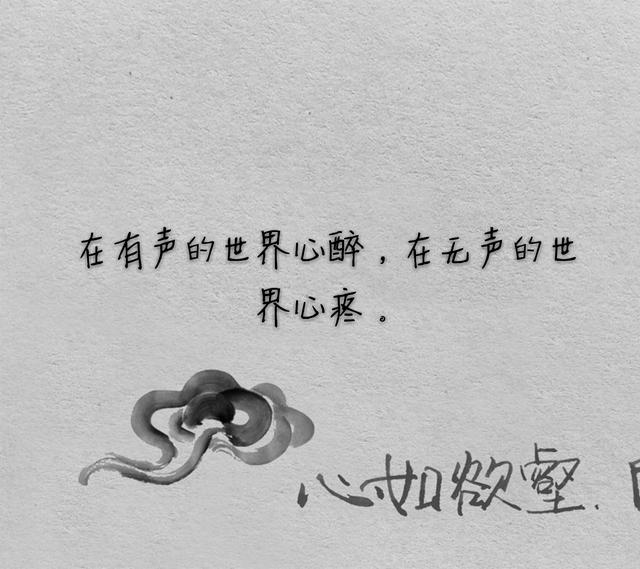 在有声的世界心醉，在无声的世
界心疼。
心如欲壑.